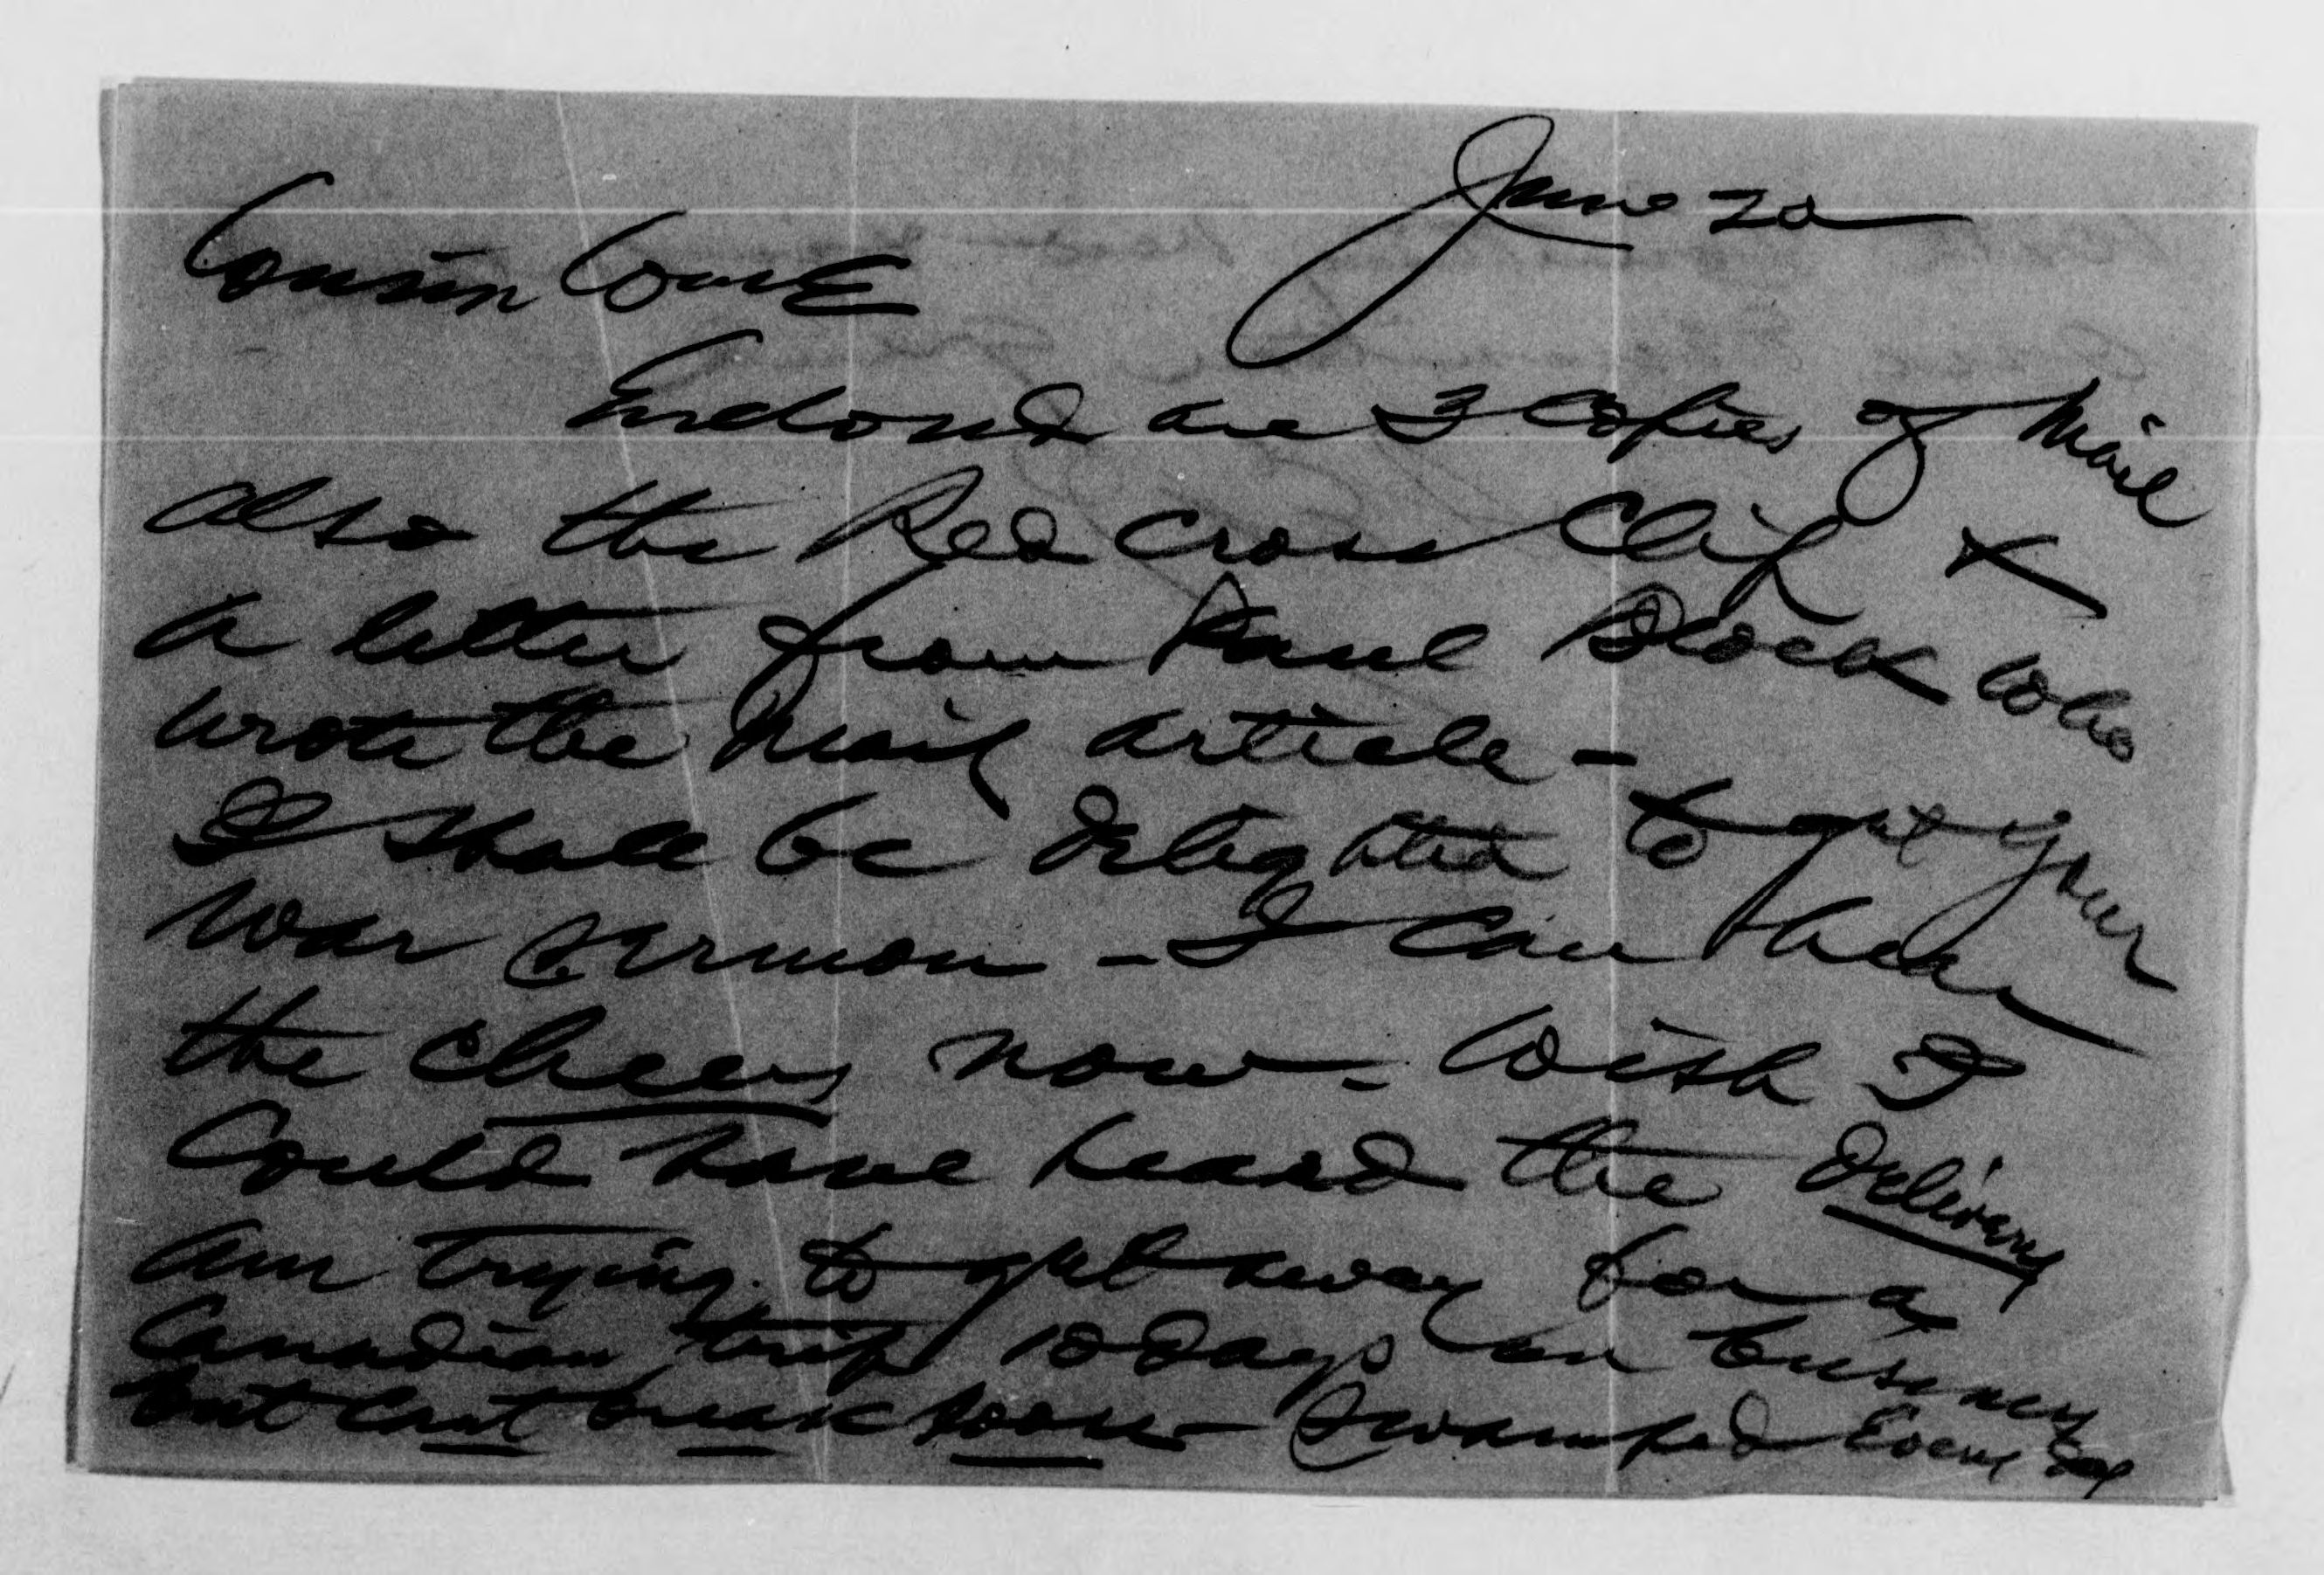 June 20
Cousin
Enclosed are 3 copies of Mail
also the Red Cross Clip &
a letter from Paul Block who
wrote the Mail article -
I shall be delighted to get your
war sermon - I can hear
the cheers now - Wish I
could have heard the delivery
am trying to get away for a
Canadian trip 10 days on business
but cant break soon - Swamped Every day